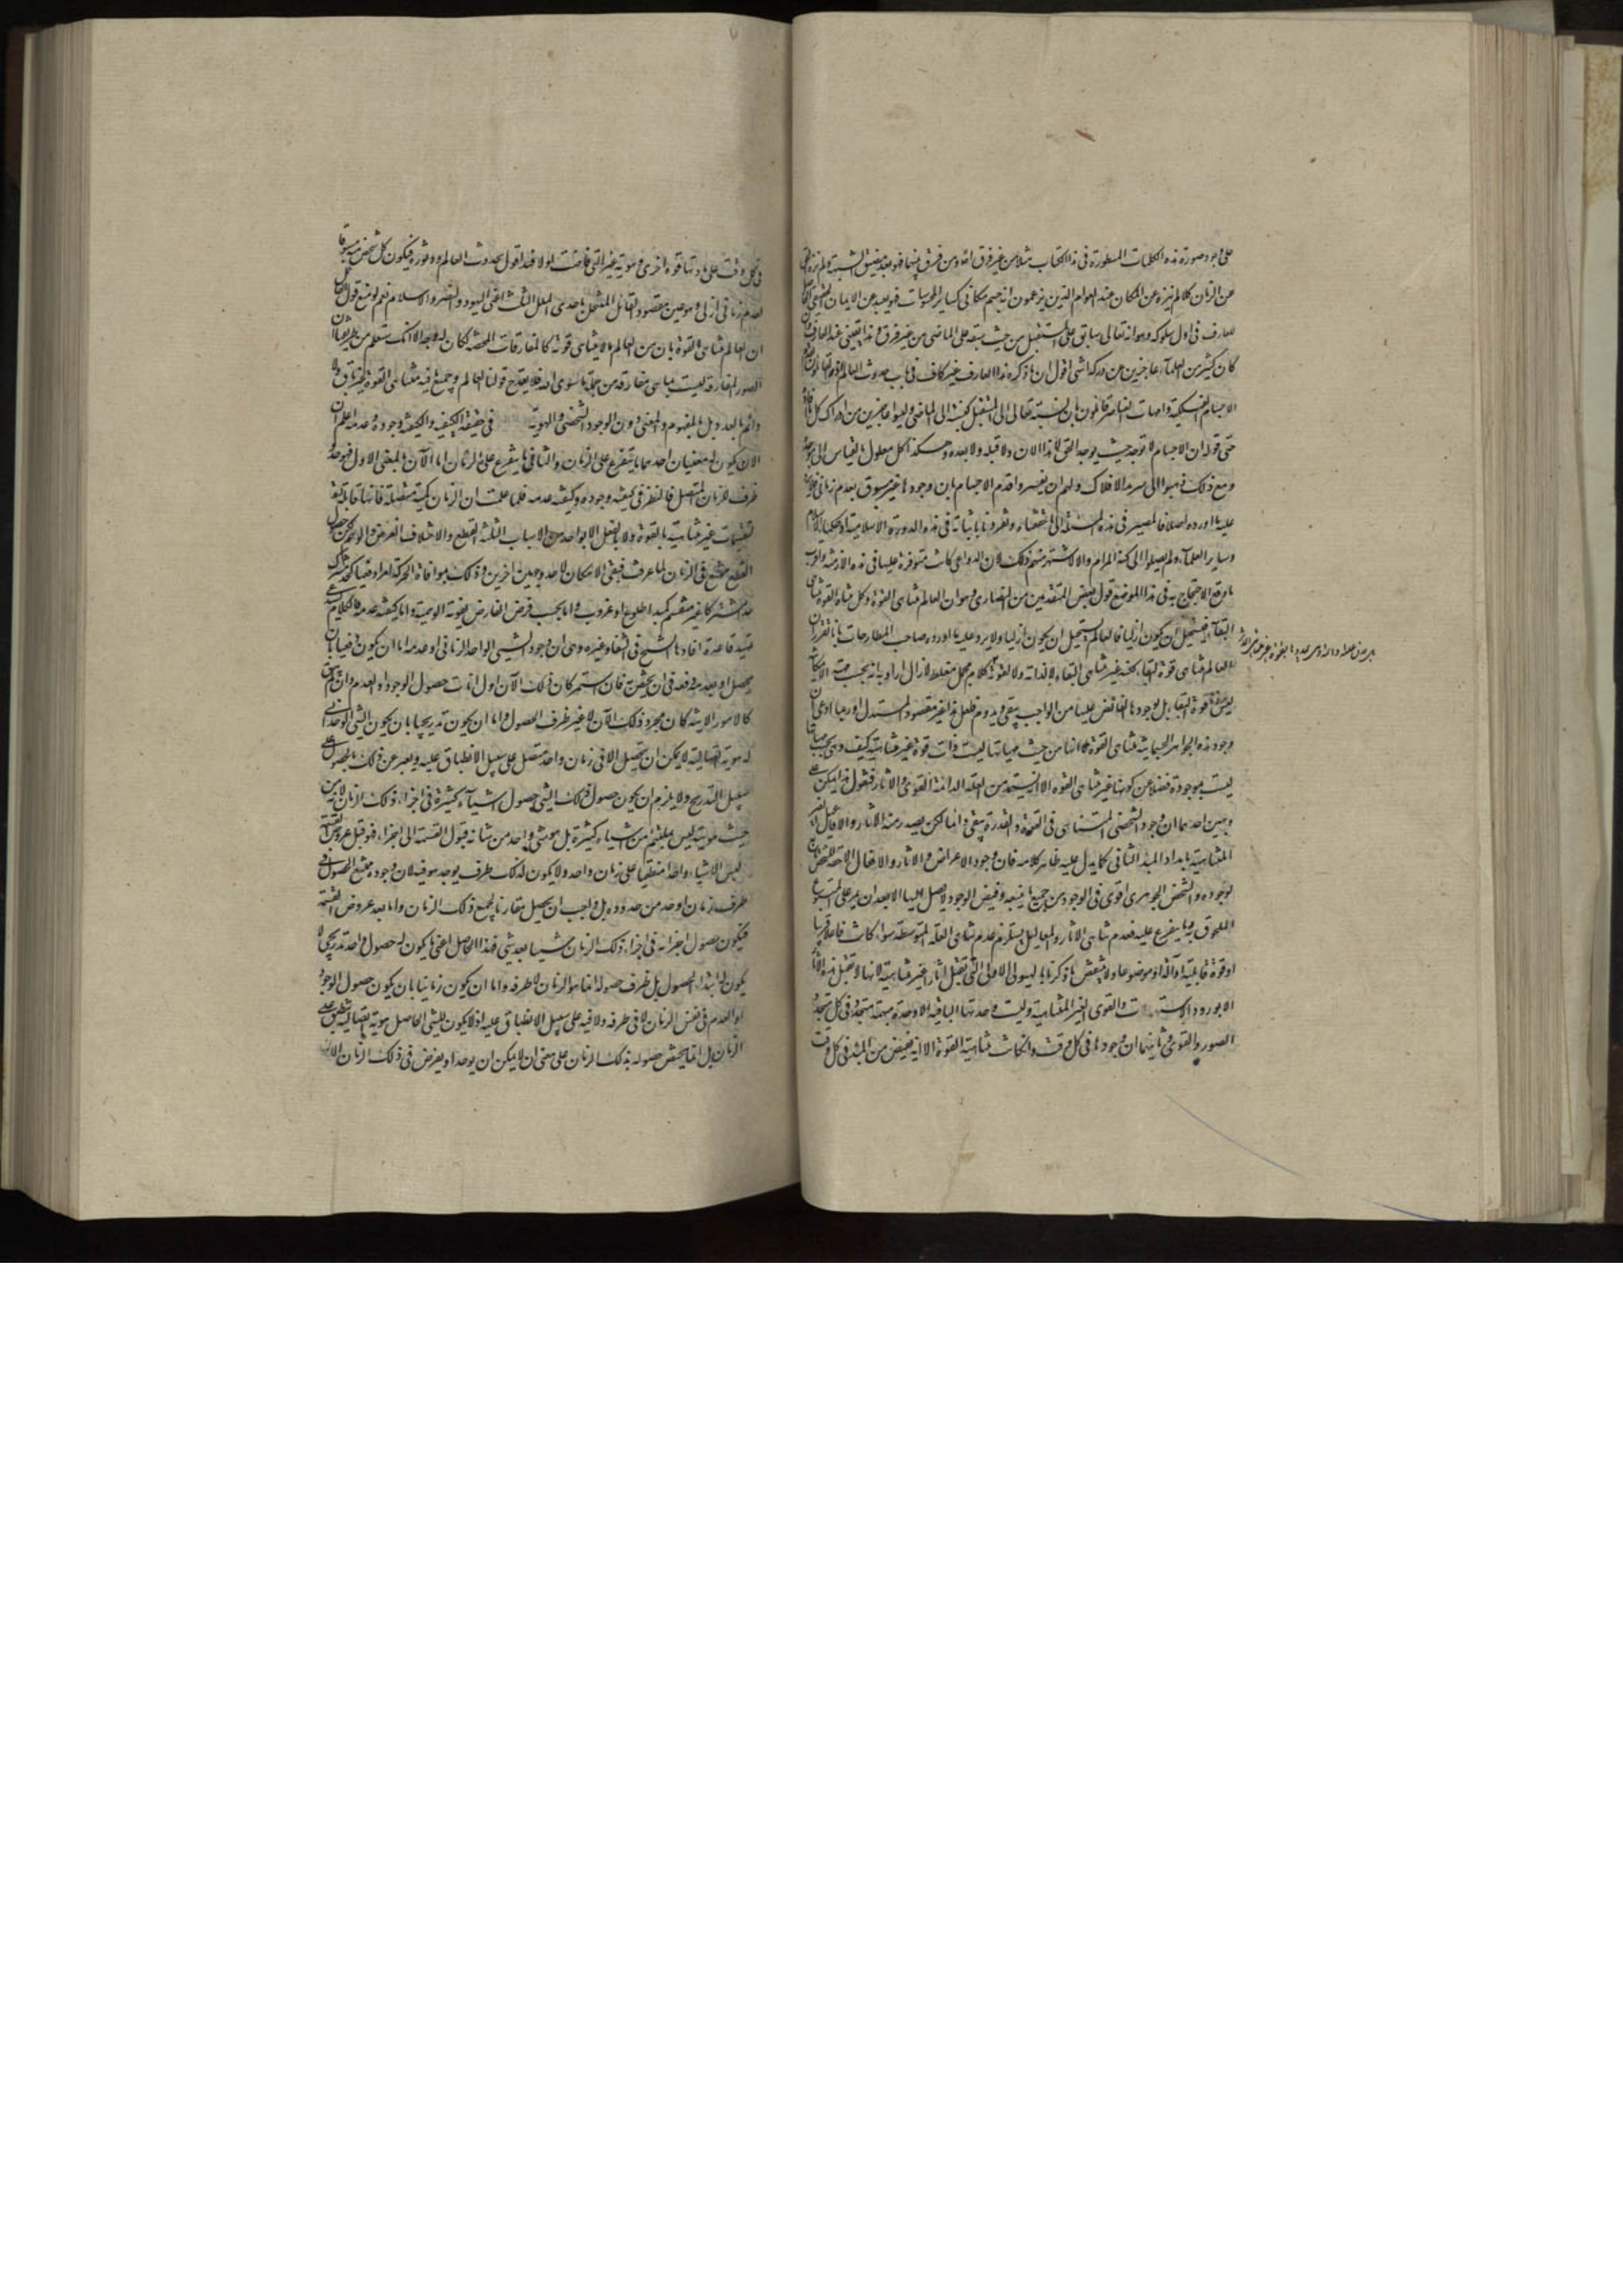 على وجود صورة هذه الكلمات المسطورة في هذا الكتاب مثلا من غير فرق اذ ومن فرق بينهما فهو بعد بضيق الشبهة ولم ينزه
عن الزمان كما لم ينزه عن المكان عند العوام الذين يزعمون انه جسم مكاني كساير الجسمانيات فهو بعيد عن الايمان
للعارف في اول سلوكه وهو انه تعالى سابق على المستقبل من حيث سبقه على الماضي من غير فرق وهذا يقيني عند العارف وان
كان كثير من العلماء عاجزين عن دركه انتهى اقول ان ما ذكره هذا العارف غير كاف في باب حدوث العالم
الاجسام الفلكية وامهات العناصر قائلون بان نسبته تعالى الى المستقبل كنسبته الى الماضي وليسوا عاجزين من ادراك كل ما
حتى قوله ان الاجسام لا توجد حيث يوجد الحق لا هذا الان ولا قبله ولا بعده وهكذا كل معلول بالقياس الى موجده
ومع ذلك ذهبوا الى سرمد الافلاك ولهم ان يفسروا قدم الاجسام بان وجودها غير مسبوق بعدم زماني
عليه ما اورده اصلا فالمصير في هذه المسئلة الى ما حققناه وتفردنا باثباته في هذه الدورة الاسلامية
وساير العلماء ولم يصلوا الى كنه المرام والا لاشتهر منهم ذلك لان الدواعي كانت متوفرة عليها في هذه الازمنة
ما وقع الاحتجاج به في هذا الموضع قول بعض المتقدمين من النصارى وهو ان العالم متناهي القوة وكل متناه القوة متناهي
البقاء فيستحيل ان يكون ازليا فالعالم يستحيل ان يكون ازليا ولا يرد عليه ما اورده صاحب المطارحات بانا نقرر ان
العالم متناهي قوة البقاء لكنه غير متناهي البقاء لا لذاته ولا لقوته
ليس لها قوة البقاء بل وجودها الفائض عليها من الواجب يبقى ويدوم فلعل هذا غير مقصود المستدل
وجود هذه الجواهر الجسمانية متناهي القوة لانها من حيث ذواتها ليست ذات قوة غير متناهية كيف وهي
ليست موجودة فضلا عن كونها غير متناهي القوة الا ان يستمد من العلة الدائمة القوى والاثار فنقول هذا يمكن
وجهين احدهما ان وجود الشخصي المتناهي في القوة والقدرة يبقى دائما لكن يصدر منه الاثار والافاعيل
المتناهية بامداد المبدء الثاني كما يدل عليه ظاهر كلامه فان وجود الاعراض والاثار والافعال
لوجوده والشخص الجوهري اقوى في الوجود من جميع ما يتبعه وفيض الوجود لا يصل اليها الا بعد ان يمر على المتبوع
الملحوق به ما يتفرع عليه فعدم تناهي الاثار والمعاليل يستلزم عدم تناهي العلة المتوسطة سواء كانت فاعلا قريبا
او قوة قابلية او آلة او موضوعا ولا ينتقض ما ذكرنا بالهيولى الاولى التي تقبل اثارا غير متناهية لانها لا تقبل هذه الاثار
الا بورود الاستعدادات والقوى الغير المتناهية وليست وحدتها الباقية الا وحدة مبهمة متجددة في كل
الصور والقوى وثانيهما ان وجودها في كل وقت وان كانت متناهية القوة الا انه يفيض من المبدء في كل وقت
في كل وقت على مادتها قوة اخرى وهوية غير التي فاضت اولا فهذا قول بحدوث العالم ودثوره فيكون كل شخص منه مسبوقا
بعدم زماني ازلي وهو عين مقصود القائل المنتحل باحدى الملل الثلث اعني اليهود والنصرى والاسلام نعم لو منع قول
ان العالم متناهي القوة بان من العالم ما لا يتناهى قوته كالمفارقات المحضة لكان له وجه الا انك ستعلم من
الصور المفارقة ليست بما هي مفارقة من جملة ما سوى الله فلا يقدح قولنا العالم وجميع ما فيه متناهي القوة
دائم بالعدد بل بالمفهوم والمعنى دون الوجود الشخصي والهوية في حقيقة الكيفية والكيفية وجوده وعدمه اعلم ان
الان يكون له معنيان احدهما ما يتفرع على الزمان والثاني ما يتفرع على الزمان اما الآن بالمعنى الاول فهو
طرف للزمان المتصل فالنظر في كيفية وجوده وكيفية عدمه فلما علمت ان الزمان كمية متصلة فانها قابلة
لتقسيمات غير متناهية بالقوة ولا بالفعل الا بواحد من الاسباب الثلثة القطع والاختلاف العرضي والوهم لكن حصول
القطع ممتنع في الزمان لما عرفت فبقي الامكان لاحد وجهين اخرين وذلك بموافاة الحركة
حدا مشتركا غير منقسم كمبدا طلوع او غروب واما بحسب فرض الفارض بقوته الوهمية واما كيفية عدمه فالكلام
فيه قاعدة افادها الشيخ في الشفا وغيره وهي ان وجود الشيء الواحد الزماني او عدمه اما ان يكون
يحصل او بعدم دفعة في ان يختص به فان استمر كان ذلك الآن اول انات حصول الوجود او العدم وان لم
كالامور الانية كان مجرد ذلك الآن لا غير ظرف الحصول واما ان يكون تدريجيا بان يكون الشيء الوحداني
له هوية اتصالية لا يمكن ان يتحصل الا في زمان واحد متصل على سبيل الانطباق عليه ويعبر عن ذلك بالحصول على
سبيل التدريج ولا يلزم ان يكون حصول ذلك الشيء حصول اشياء كثيرة في اجزاء ذلك الزمان لانه من
حيث هويته ليس بملتئم من اشياء كثيرة بل هو شيء واحد من شانه قبول القسمة الى اجزاء فهو قبل عروض القسمة
ليس الا شيئا واحدا منطبقا على زمان واحد ولا يكون لذلك طرف يوجد هو فيه لان وجوده ممتنع الحصول في
طرف زمان او حد من حدوده بل واجب ان يحصل مقارنا لجميع ذلك الزمان واما بعد عروض القسمة
فيكون حصول اجزائه في اجزاء ذلك الزمان شيئا بعد شيء فهذا الحاصل اعني ما يكون له حصول واحد تدريجي لا
يكون له ابتداء الحصول بل ظرف حصوله انما هو الزمان لا طرفه واما ان يكون زمانيا بان يكون حصول الوجود
او العدم في نفس الزمان لا في طرفه ولا فيه على سبيل الانطباق عليه اذ لا يكون للشيء الحاصل هوية اتصالية ينطبق على
الزمان بل انما يختص حصوله بذلك الزمان على معنى ان لا يمكن ان يوجد او يفرض في ذلك الزمان الان